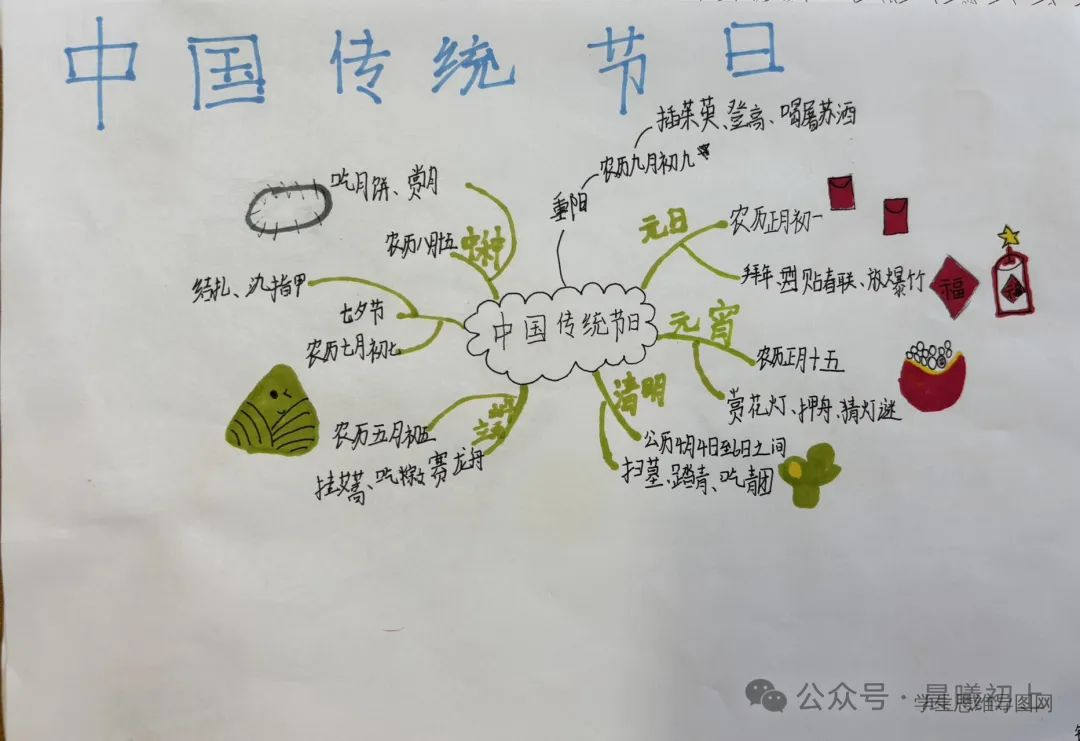 中国传统节日
插茱萸、登高、喝屠苏酒
农历九月初九
重阳
元日
农历正月初一
拜年、贴春联、放爆竹
福
元宵
农历正月十五
赏花灯、押舟、猜灯谜
清明
公历4月4日至6日之间
扫墓、踏青、吃青团
农历五月初五
挂艾蒿、吃粽、赛龙舟
七夕节
结扎、染指甲
农历七月初七
中秋
吃月饼、赏月
农历八月十五
中国传统节日
公众号·晨曦初上
学生思维导图网